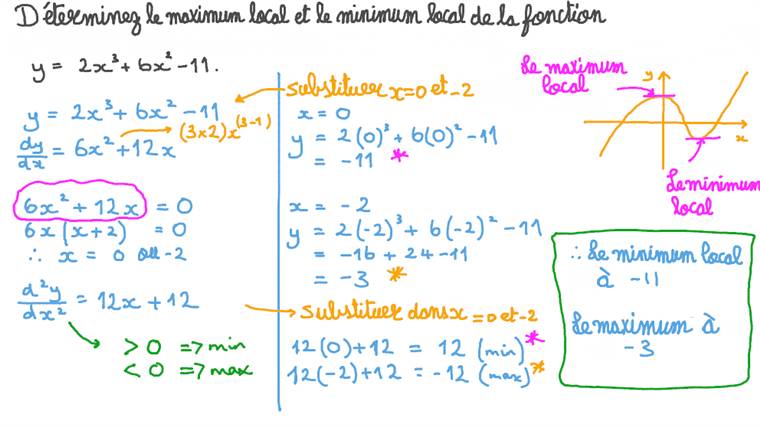 Déterminez le maximum local et le minimum local de la fonction
y = 2x³ + 6x² - 11.
y = 2x³ + 6x² - 11
(3×2)x⁽³⁻¹⁾
dy/dx = 6x² + 12x
6x² + 12x = 0
6x(x+2) = 0
∴ x = 0 ou -2
d²y/dx² = 12x + 12
> 0 => min
< 0 => max
substituer x=0 et -2
x = 0
y = 2(0)³ + 6(0)² - 11
= -11 *
x = -2
y = 2(-2)³ + 6(-2)² - 11
= -16 + 24 - 11
= -3 *
substituer dans x = 0 et -2
12(0)+12 = 12 (min)*
12(-2)+12 = -12 (max)*
Le maximum
local
y
x
Le minimum
local
∴ Le minimum local
à -11
Le maximum à
-3